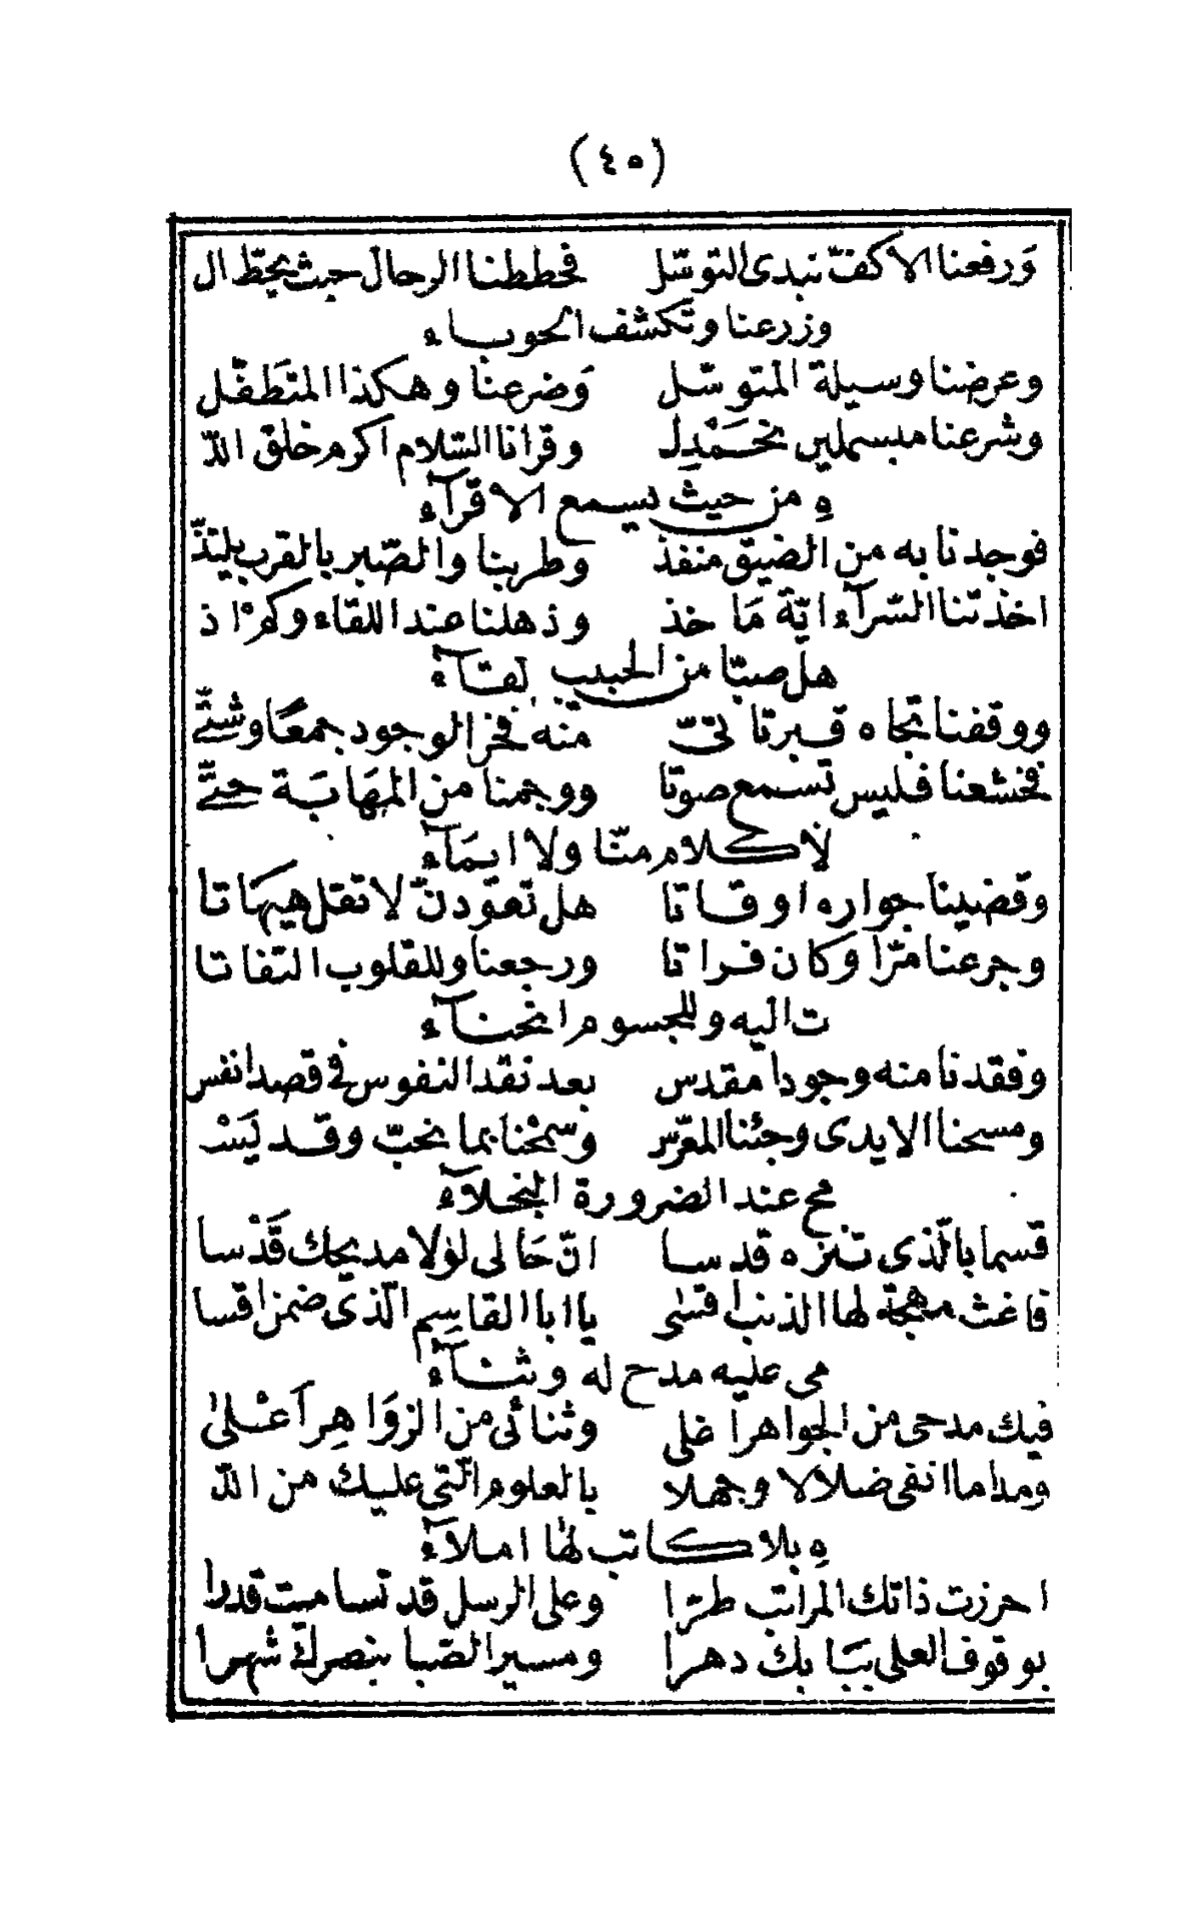 (٤٥)
وَرفعنا الاكفّ نبدى التوسّل فحططنا الرحال حيث يحطّ ال
وزرعنا وتكشف الحوباء
وعرضنا وسيلة المتوسّل وَضرعنا وهكذا المتَطَفّل
وشرعنا مبسملين بخَمْدِل وقرانا السّلام اكرم خلق اللّ
هِ من حيث يسمع الاقرآء
فوجدنا به من الضيّق منفذ وطربنا والصّبر بالقرب يلتذّ
اخذتنا السّرآء ايّة مَا خذ وذهلنا عند اللقاء وكمْ اذ
هل صبّا من الحبيب لقآء
ووقفنا تجاه قبر تاتىّ منّه فخر الوجود جمعًا وشتّى
فخشعنا فليس تسمع صوتا ووجمنا من المَهَابَة حتّى
لا كلام منّا ولا ايمَآء
وقضينا جواره اوقاتا هل تعوّدنّ لا تقل هيهَاتا
وجرعنا مرّا وكان فراتا ورجعنا وللقلوب التفاتا
ت اليه وللجسوم انحنآء
وفقدنا منه وجودا مقدس بعد نقد النفوس فى قصد انفس
ومسحنا الايدى وجئنا المعرّس وسمحْنا بما نحبّ وقد يَسْ
مح عند الضرورة البخلآء
قسما بالّذى تنزه قدسا انّ حَالى لوْلا مديحك قَدْسا
فاغث مهجة لها الذنب اقسٰى يا ابا القاسِم الّذى ضمن اقسا
مى عليه مدح له وثنآء
فيك مدحى من الجواهر اغلى وثنائى من الزوَاهِر اَعْلىٰ
ومداما انفى ضلالا وجهلا بالعلوم الّتى عليك من اللّ
هِ بلا كاتب لهٰا املآء
احرزت ذاتك المراتب طرّا وعلى الرسل قد تسامت قدرا
بوقوف العلى ببَابك دهرا ومسير الصّبا بنصركْ شهرا